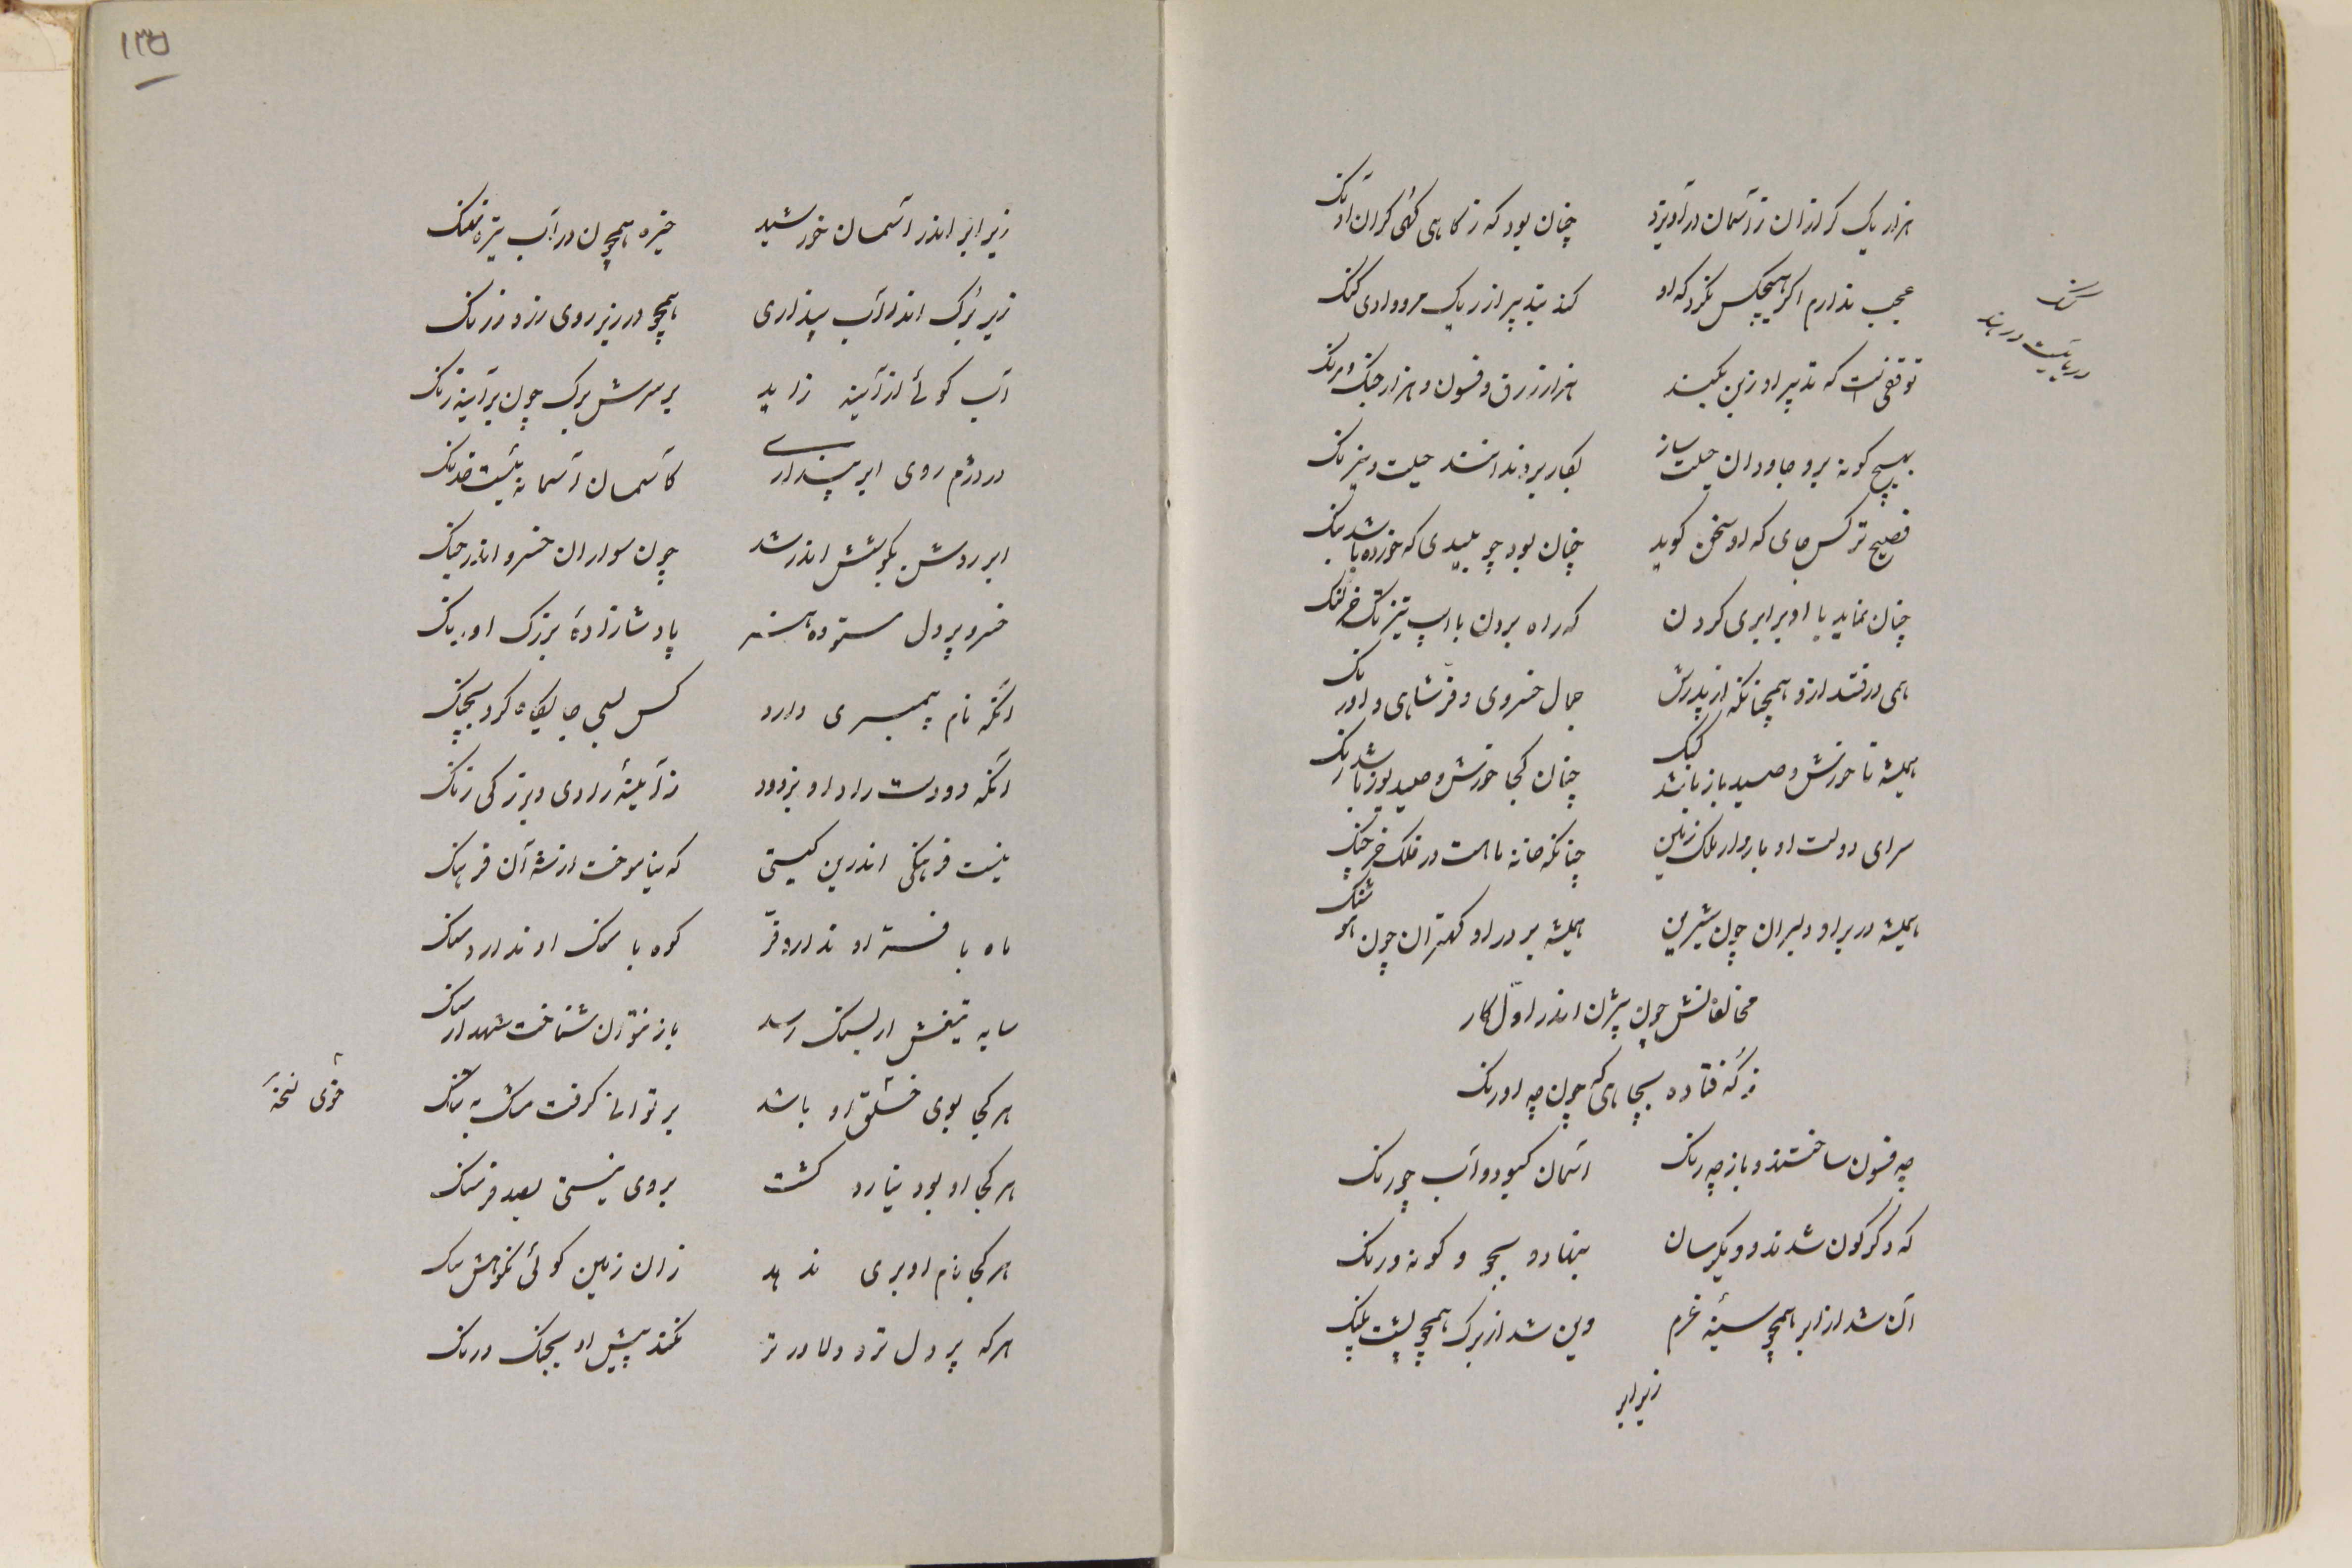 هزار یک گر ازان ز آسمان در آویزد چنان بود که ز کاهی کهی کران آونگ
عجب ندارم اگر هیچکس نگرد که او کند بتدبیر از ریگ مرو وادی گنگ
گنگ
دریائیست در هند
توقفی است که تدبیر او زمین بکند هزار زرق و فسون و هزار جنگ و رنگ
بهیچ گونه برو جاودان حیلت ساز بکار برد ندانند حیلت و نیرنگ
فصیح تر کس جای که او سخن گوید چنان بود چو پلیدی که خورده باشد بنگ
چنان نماید با او برابری کردن که راه بردن با اسپ تیزتک خر لنگ
همی درفشد ازو همچنانکه از پدرش جمال خسروی و فر شاهی و اورنگ
همیشه تا خورش و صید باز باشد کبک چنان کجا خورش و صید یوز باشد رنگ
سرای دولت او باد وارملک زمین چنانکه خانه ماهست در فلک خرچنگ
همیشه در بر او دلبران چون شیرین همیشه بر در او کهتران چون هوشنگ
مخالفانش چون بیژن اندر اول کار
ز که فتاده بچاهی که چون چه اورنگ
چه فسون ساختند و باز چه رنگ آسمان کبود و آب چو رنگ
که دگرگون شدند و دیگرسان بنهاد و بچه و گونه و رنگ
آن شد از ابر همچو سینهٔ غرم وین شد از برگ همچو پشت پلنگ
زیر ابر
۱۳۵
زیر ابر اندر آسمان خورشید خیره همچون در آب تیره نهنگ
زیر برگ اندر آب پنداری همچو در زیر روی زرد زرنگ
آب گوئی از آئینه زاید بر سرش برگ چون بر آینه زنگ
در دژم روی ابر پنداری کآسمان آسمانه‌ئیست خدنگ
ابر روشن بکوشش اندر شد چون سواران خسرو اندر جنگ
خسرو پردل ستوده هنر پادشازادهٔ بزرگ اورنگ
آنکه نام پیمبری دارد کس لبی جایگاه کرد بچنگ
آنکه دو دست راد او بزدود ز آینهٔ رادی و بزرگی زنگ
نیست فرهنگی اندرین گیتی که نیاموخت از شه آن فرهنگ
ماه با فسته او ندارد فر کوه با سنگ او ندارد سنگ
سایه تیغش ار بسنگ رسد باز نتوان شناخت شهد از سنگ
هر کجا بوی خلق او باشد بر توانا گرفت مشک به تنگ
خوی نسخه
هر کجا او بود نیارد گشت بر وی نیستی بصد فرسنگ
هر کجا نام او بری ندهد زان زمین گوئی نکوهش ننگ
هر که پردل تر و دلاور تر نکند پیش او بجنگ درنگ